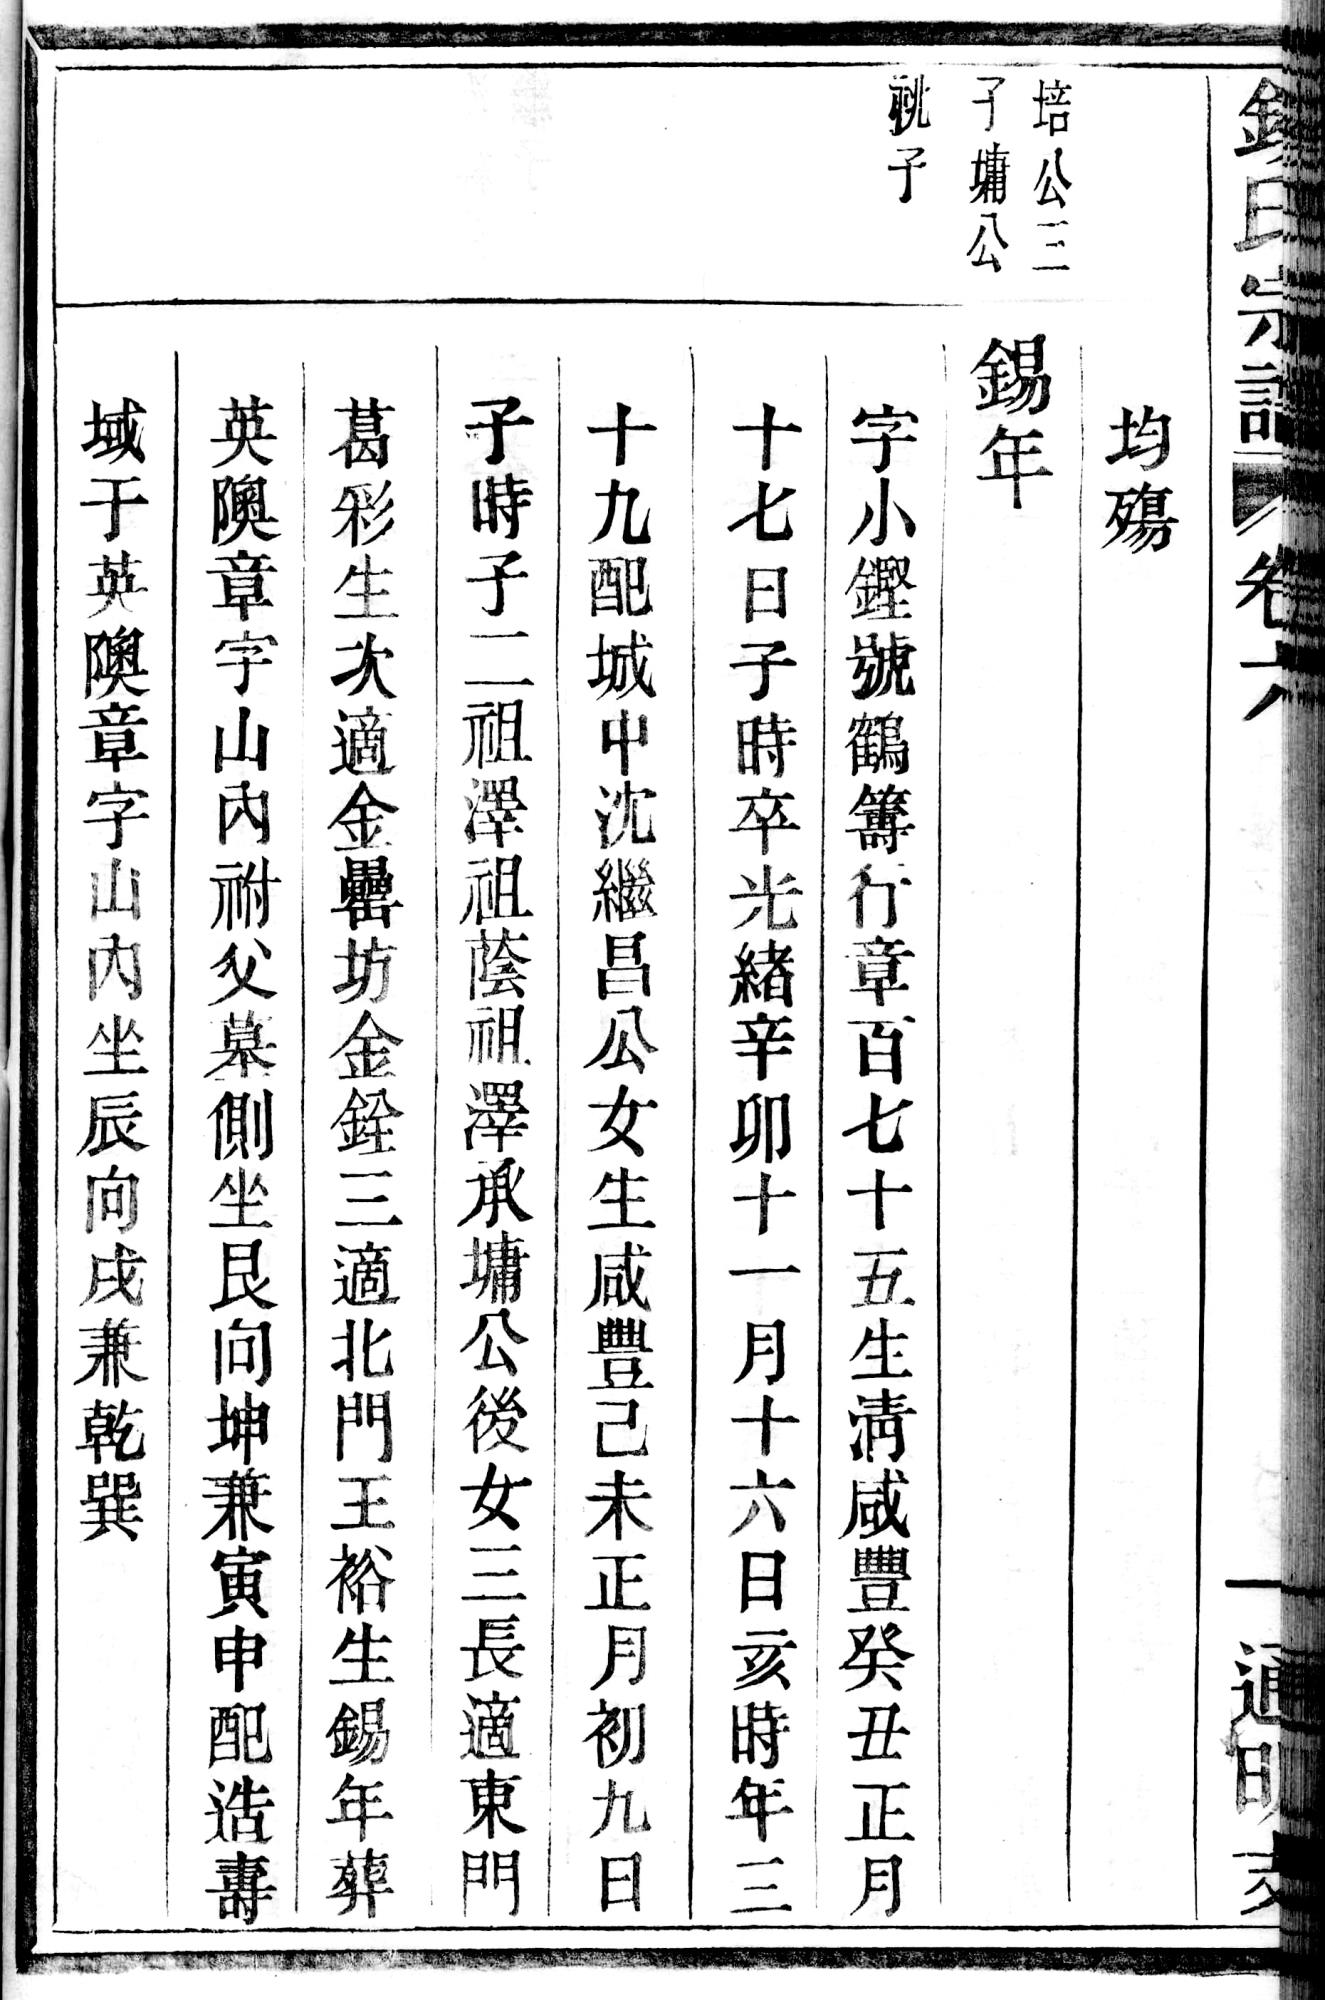 錢氏宗譜 卷六 通明支
均殤
培公三
子墉公
祧子
錫年
字小鏗號鶴籌行章百七十五生清咸豐癸丑正月
十七日子時卒光緒辛卯十一月十六日亥時年三
十九配城中沈繼昌公女生咸豐己未正月初九日
子時子二祖澤祖蔭祖澤承墉公後女三長適東門
葛彩生次適金罍坊金銓三適北門王裕生錫年葬
英隩章字山內祔父墓側坐艮向坤兼寅申配造壽
域于英隩章字山內坐辰向戌兼乾巽